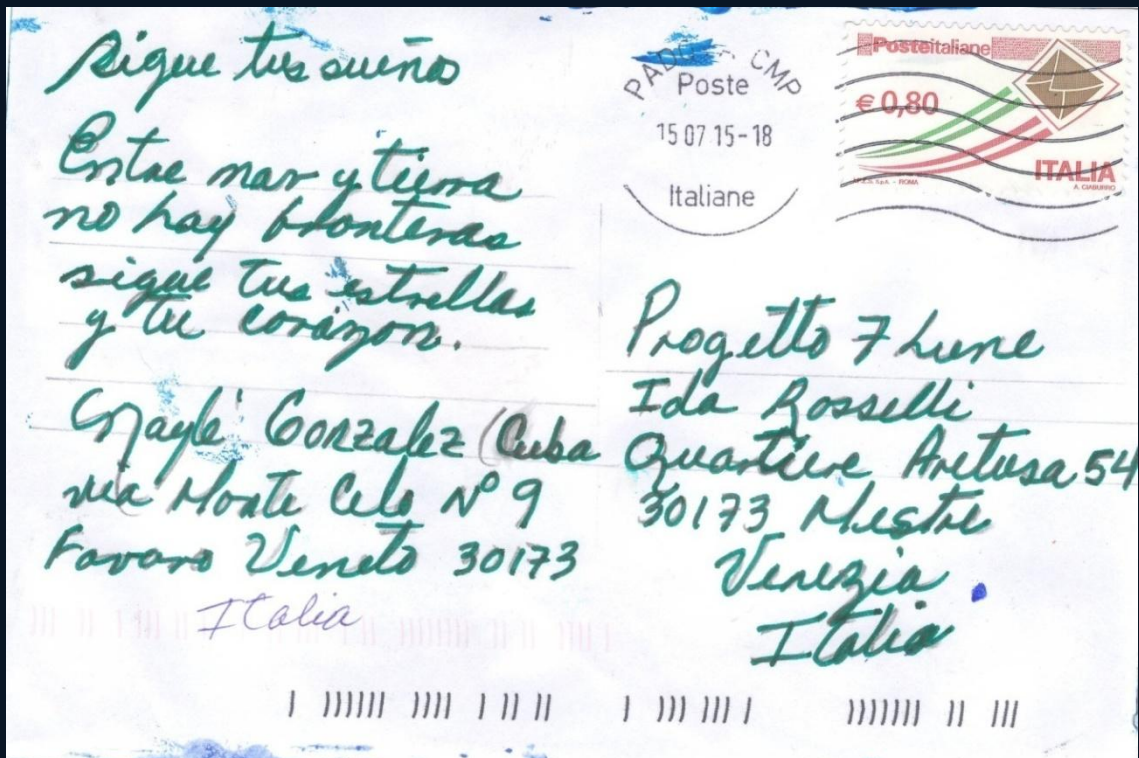 Sigue tus sueños
Entre mar y tierra
no hay fronteras
sigue tus estrellas
y tu corazon.
Maylé Gonzalez (Cuba
via Monte Celo N° 9
Favaro Veneto 30173
Italia
CMP
Poste
15 07 15-18
Italiane
Posteitaliane
€ 0,80
ITALIA
A. CIABURRO
S.p.A. - ROMA
Progetto 7 Lune
Ida Rosselli
Quartiere Aretusa 54
30173 Mestre
Venezia
Italia